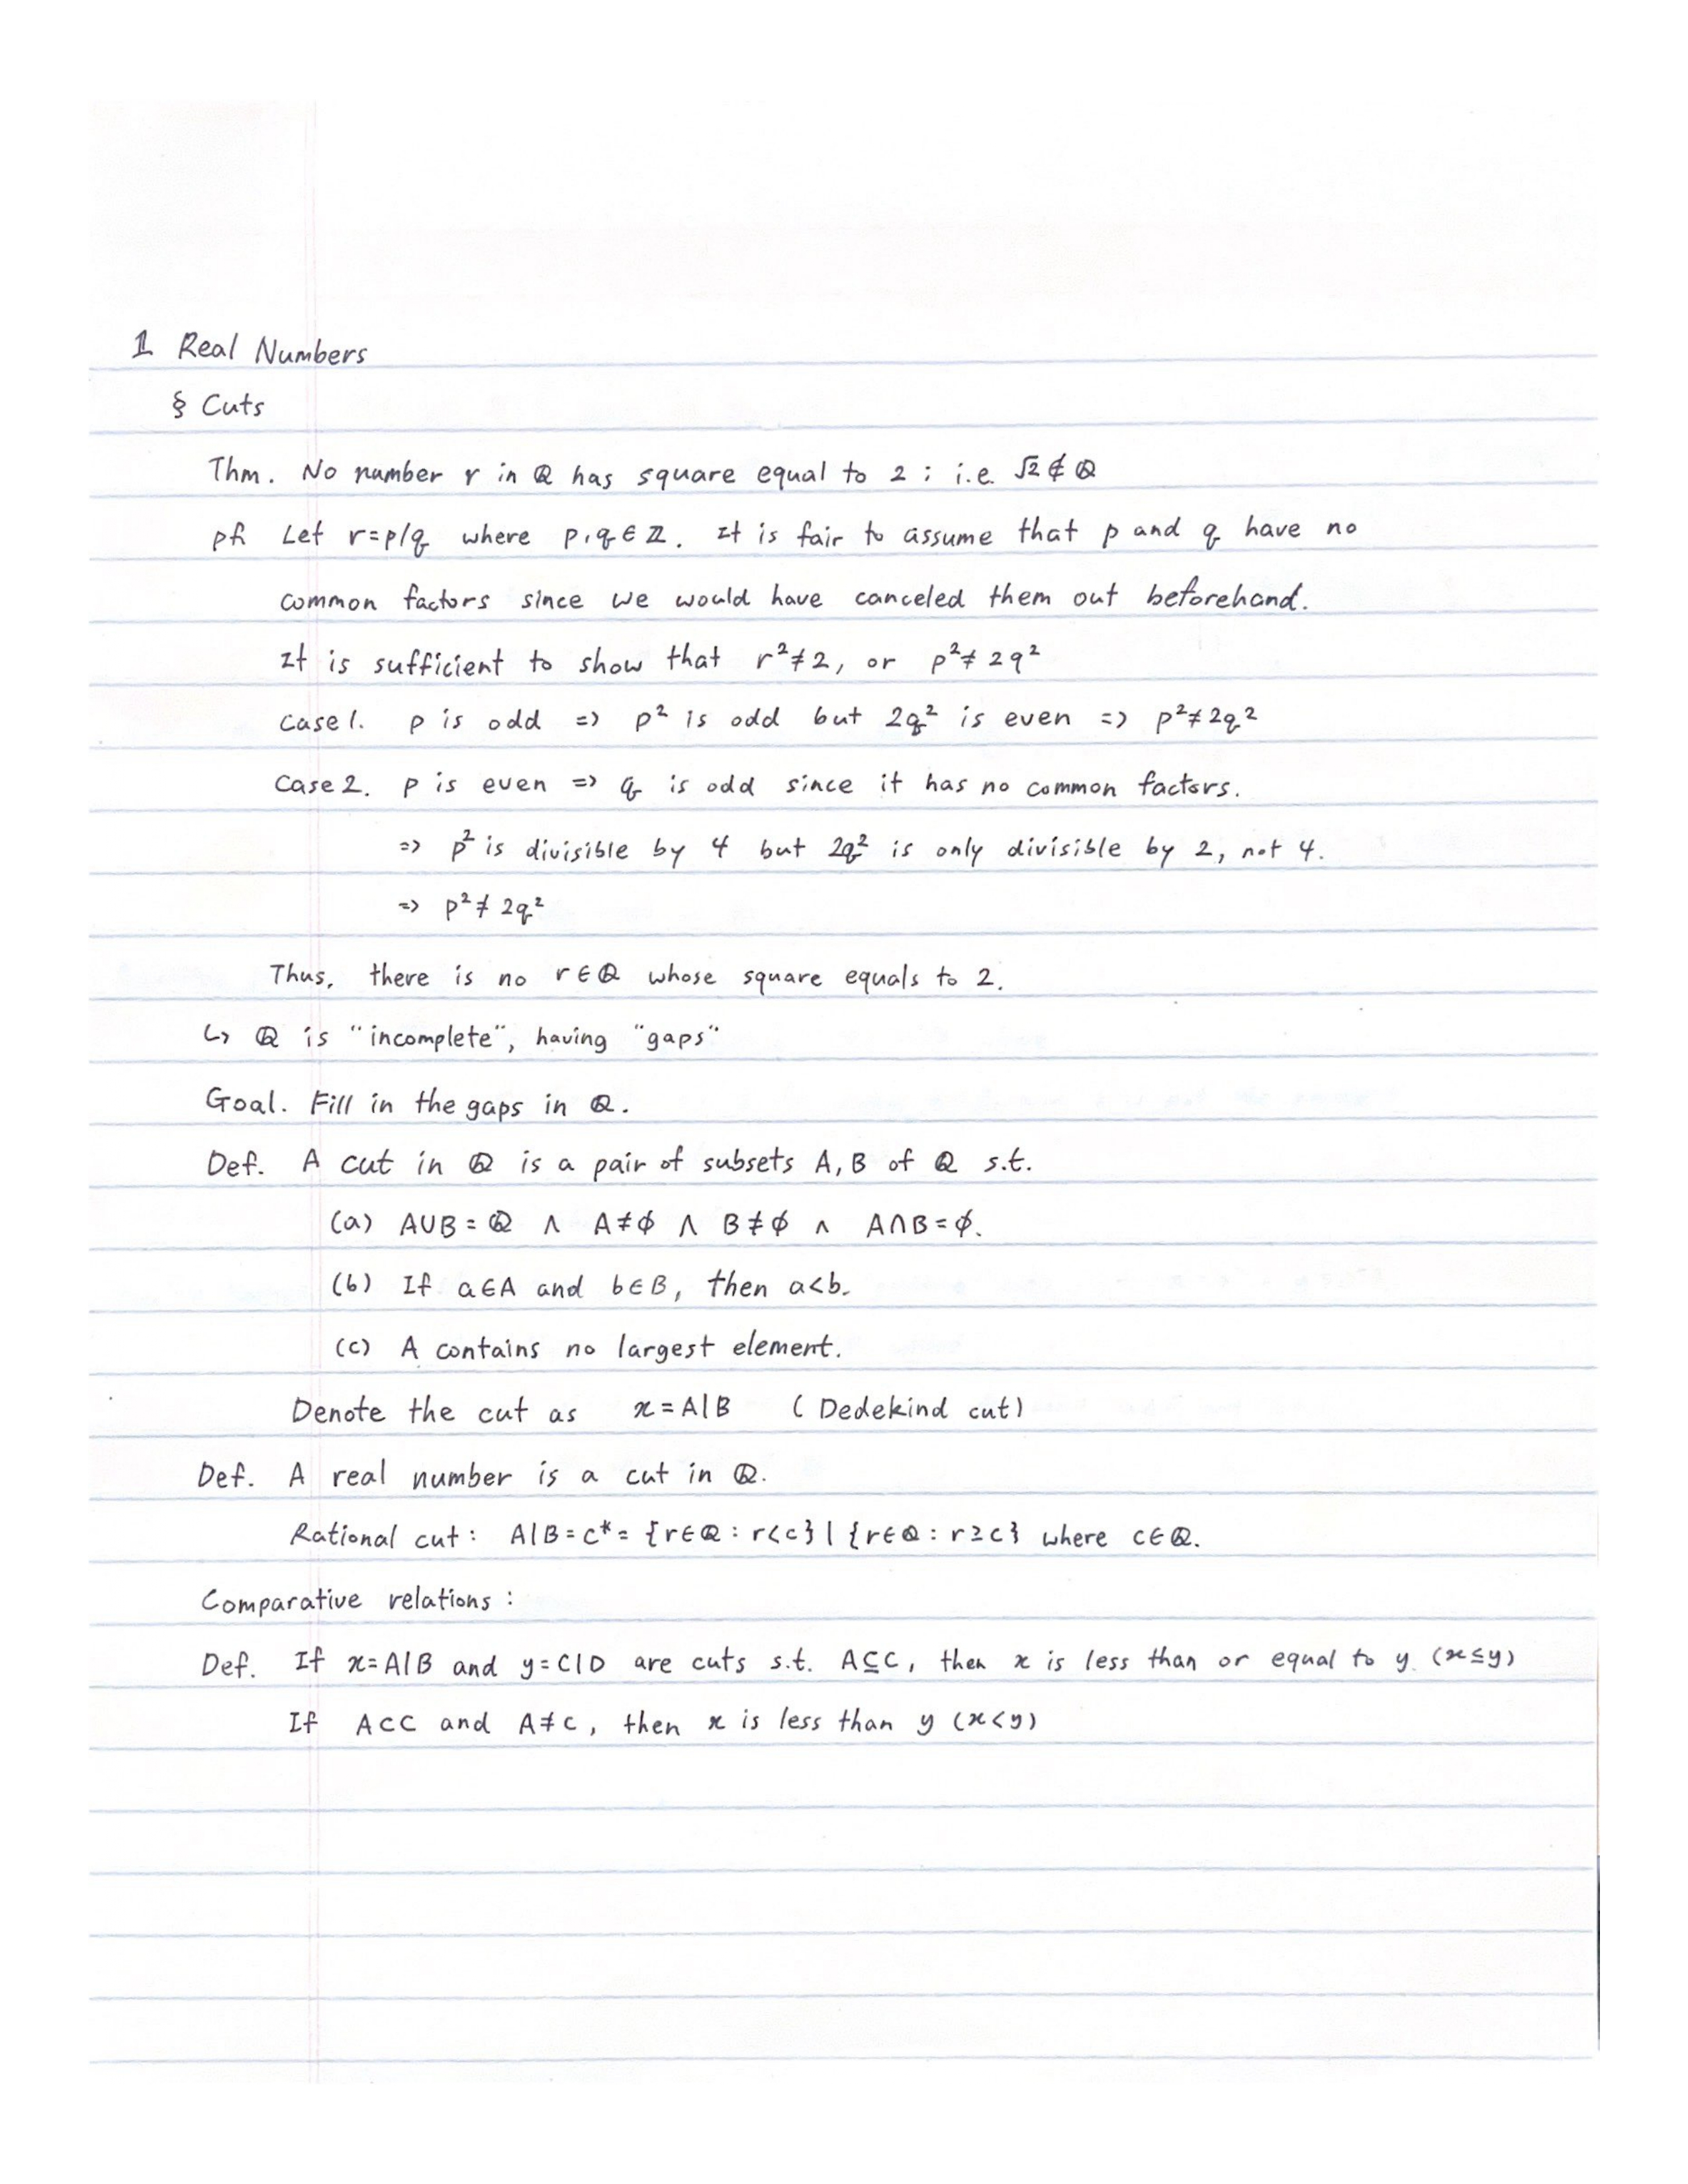 1 Real Numbers
§ Cuts
Thm. No number r in ℚ has square equal to 2 ; i.e. √2 ∉ ℚ
pf. Let r=p/q where p,q ∈ ℤ. It is fair to assume that p and q have no
common factors since we would have canceled them out beforehand.
It is sufficient to show that r²≠2, or p²≠ 2q²
Case 1. p is odd => p² is odd but 2q² is even => p²≠2q²
Case 2. p is even => q is odd since it has no common factors.
=> p² is divisible by 4 but 2q² is only divisible by 2, not 4.
=> p²≠ 2q²
Thus, there is no r∈ℚ whose square equals to 2.
↳ ℚ is "incomplete", having "gaps"
Goal. Fill in the gaps in ℚ.
Def. A cut in ℚ is a pair of subsets A, B of ℚ s.t.
(a) A∪B = ℚ ∧ A≠∅ ∧ B≠∅ ∧ A∩B=∅.
(b) If a∈A and b∈B, then a<b.
(c) A contains no largest element.
Denote the cut as x=A|B (Dedekind cut)
Def. A real number is a cut in ℚ.
Rational cut : A|B = c* = {r∈ℚ : r<c} | {r∈ℚ : r≥c} where c∈ℚ.
Comparative relations :
Def. If x=A|B and y=C|D are cuts s.t. A⊆C, then x is less than or equal to y. (x≤y)
If A⊂C and A≠C, then x is less than y (x<y)